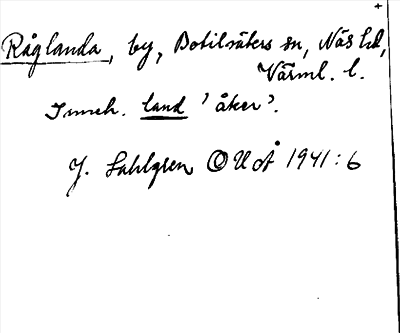 Råglanda, by, Botilsäters sn, Näs hd,
Värml. l.
Inneh. land 'åker'.
J. Sahlgren OUÅ 1941:6